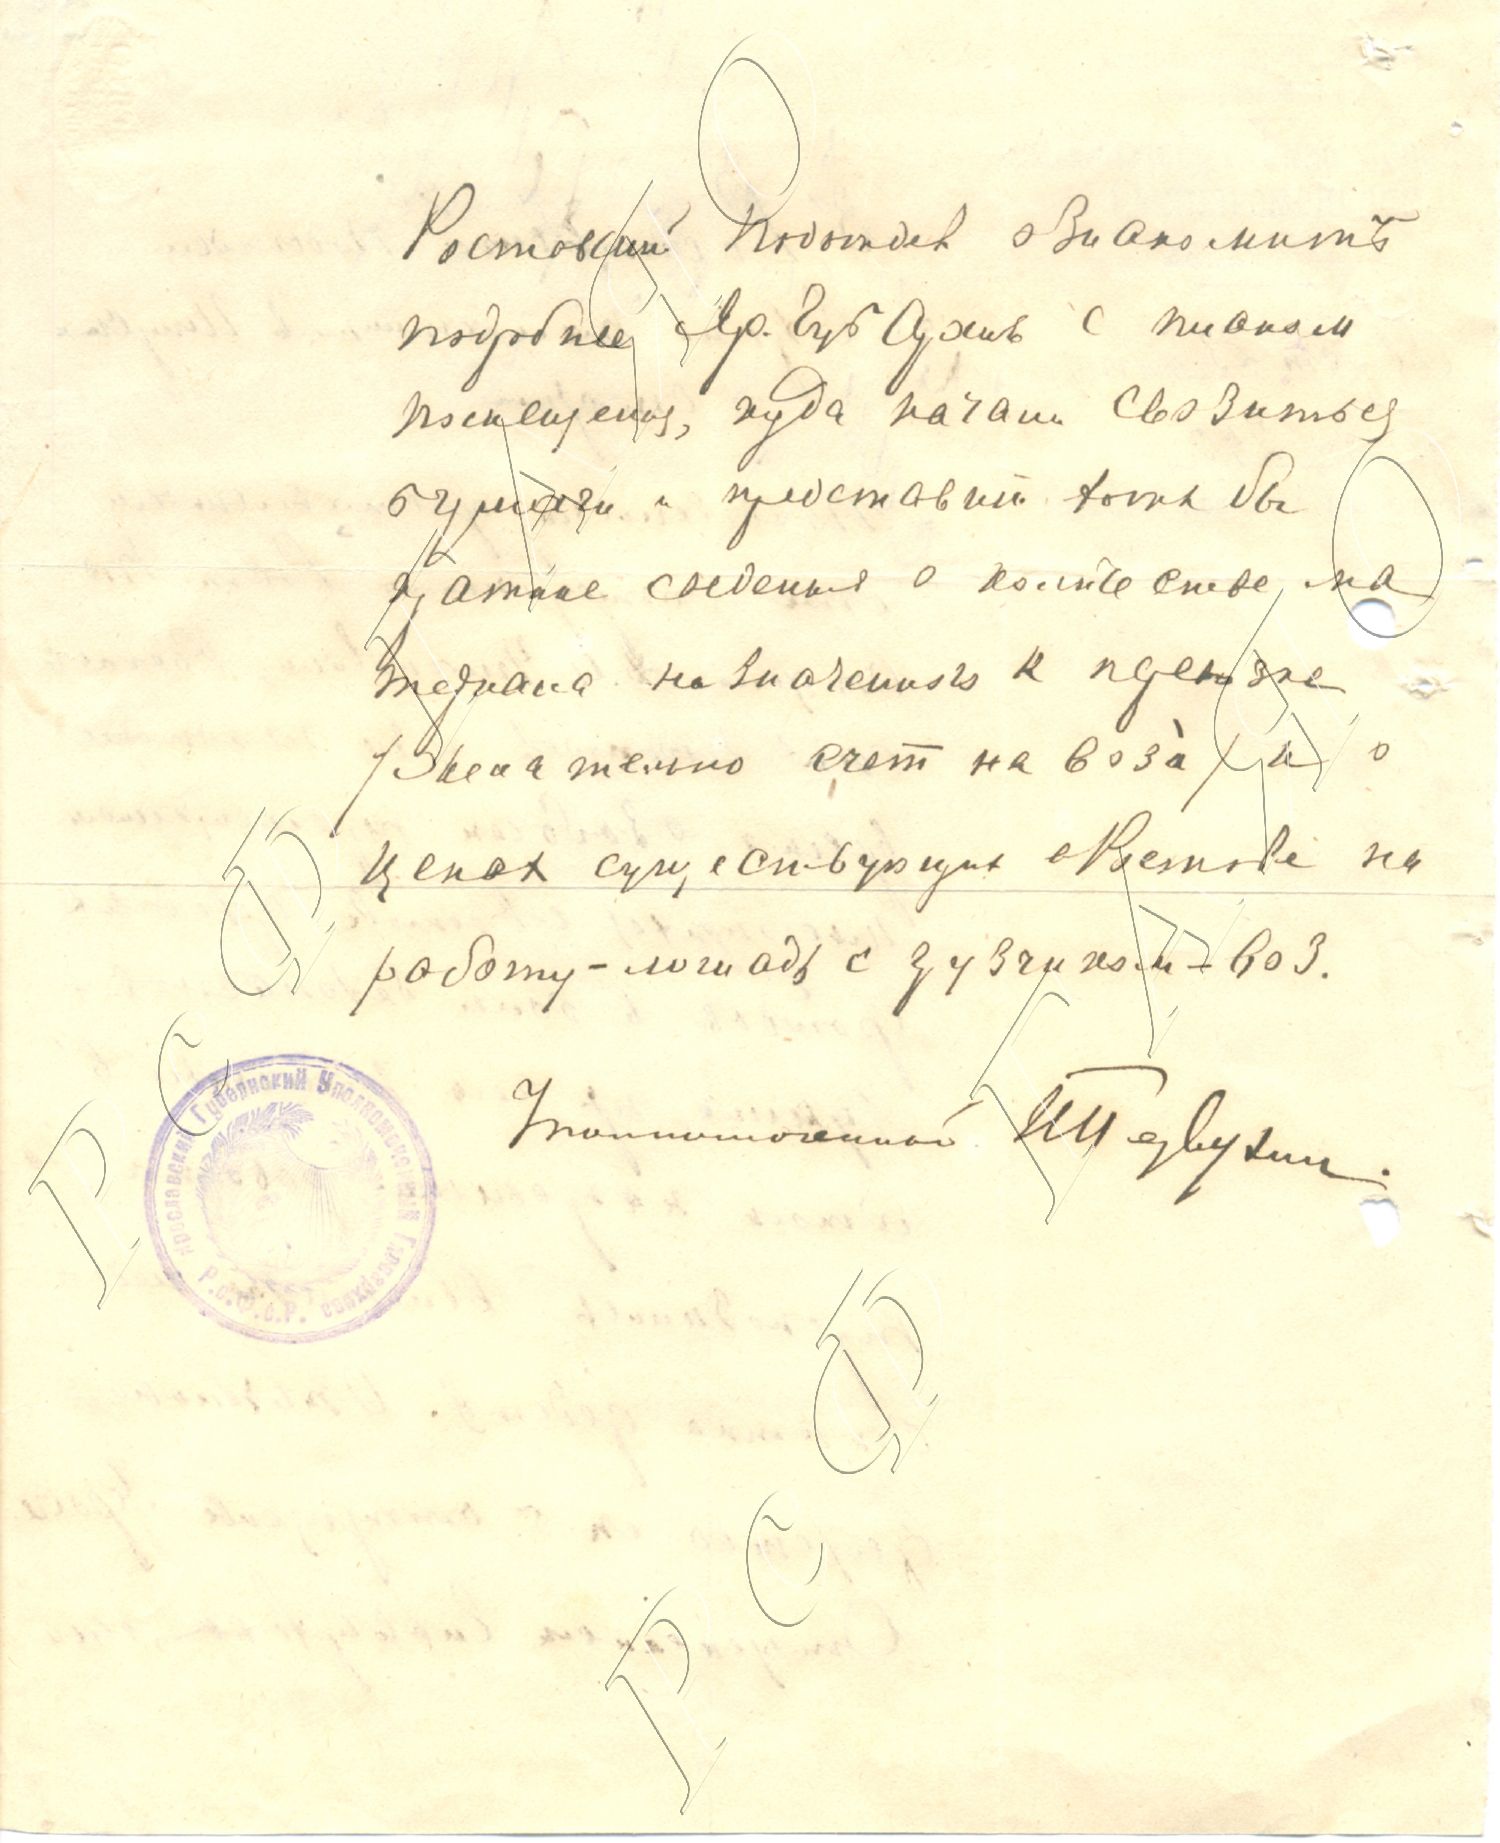 Ростовский Подотдел ознакомить
подробнее Яр. Губ Архив с планом
помещения, куда начали свозиться
бумаги и представит хотя бы
краткие сведения о количестве ма
териала назначенного к перевозке
/Желательно счет на воза/ и о
ценах существующих в Ростове на
работу - лошадь с грузчиком - воз.
Уполномоченный
Ярославский Губернский Уполномоченный Главархива
Р.С.Ф.С.Р.